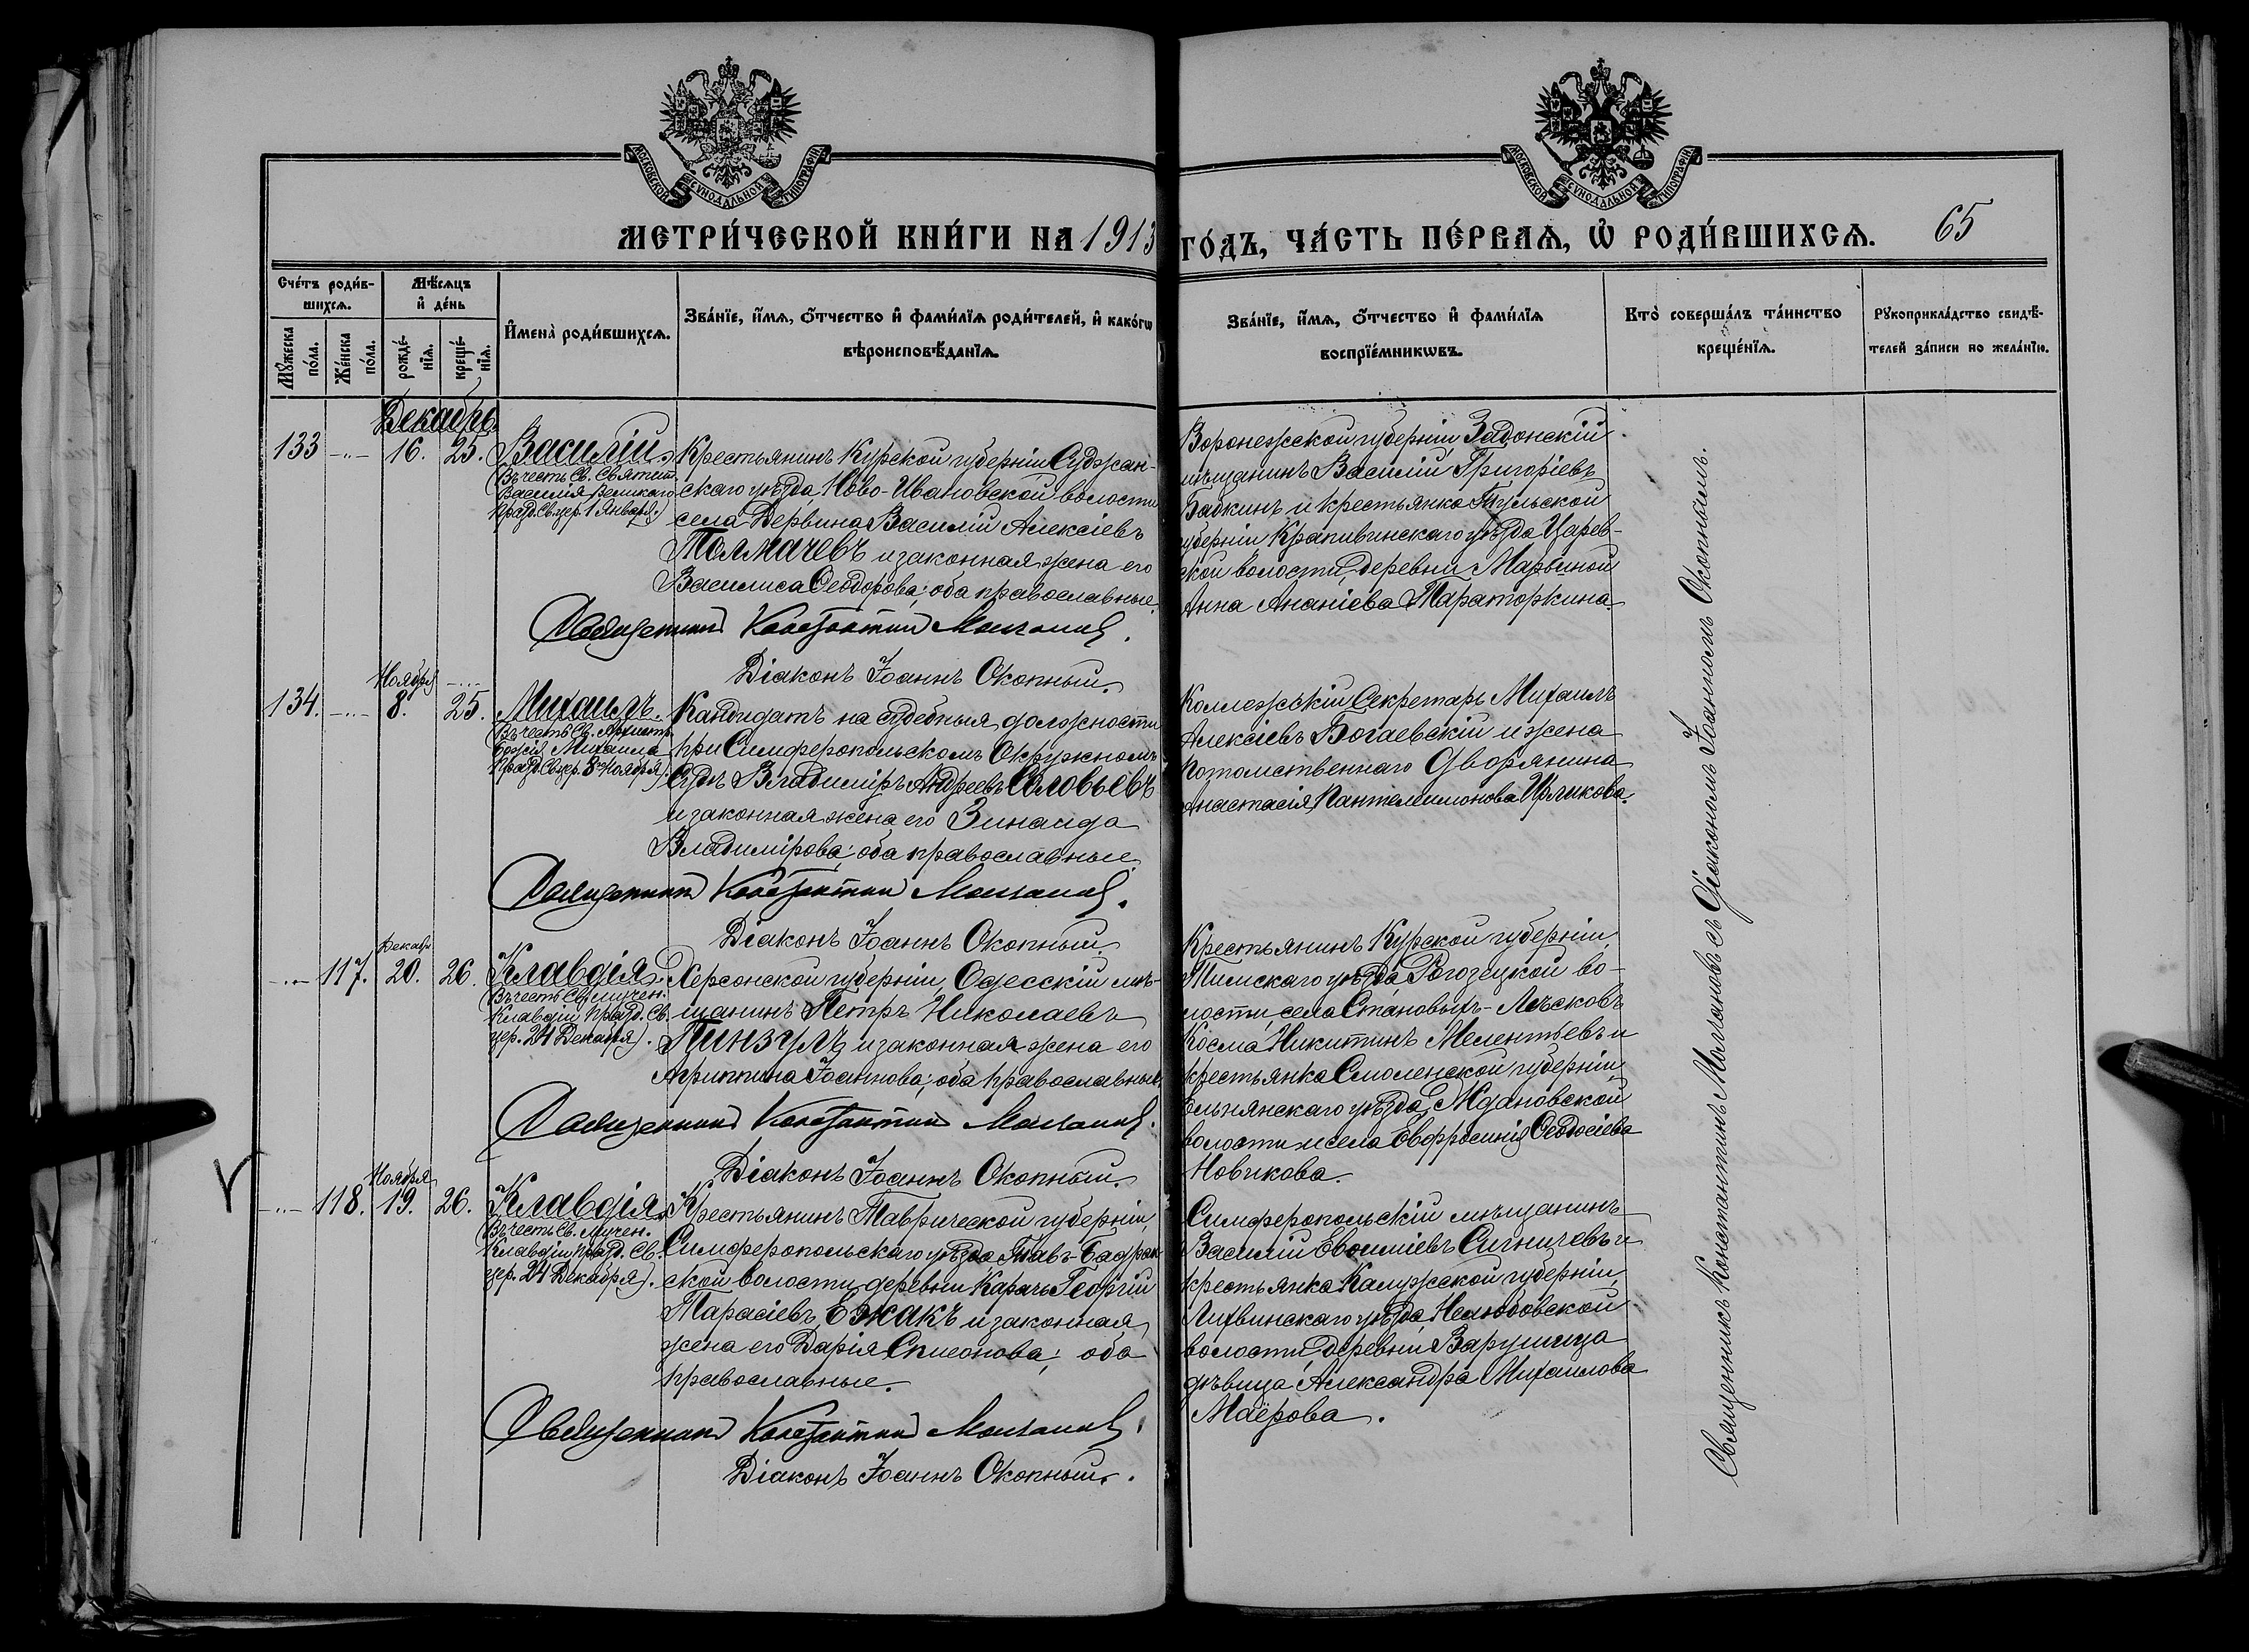 МОСКОВСКОЙ СѴНОДАЛЬНОЙ ТИПОГРАФІИ
МОСКОВСКОЙ СѴНОДАЛЬНОЙ ТИПОГРАФІИ
МЕТРИ́ЧЕСКОЙ КНИ́ГИ НА 1913 ГО́ДЪ, ЧА́СТЬ ПЕ́РВАѦ, Ѽ РОДИ́ВШИХСѦ. 65
Сче́тъ роди́в-
шихсѧ.
Мꙋ́жеска
по́ла.
Же́нска
по́ла.
Мѣ́сѧцъ
и҆ де́нь
рожде́-
нїѧ.
креще́-
нїѧ.
И҆мена̀ роди́вшихсѧ.
Зва́нїе, и҆́мѧ, ѻ҆́тчество и҆ фами́лїѧ роди́телей, и҆ како́гѡ
вѣроисповѣ́данїѧ.
Зва́нїе, и҆́мѧ, ѻ҆́тчество и҆ фами́лїѧ
воспрїе́мникѡвъ.
Кто̀ соверша́лъ та́инство
креще́нїѧ.
Рꙋкоприкла́дство свидѣ́-
телей за́писи по жела́нїю.
Декабрь
133 -„- 16. 25.
Василій.
Въ честь Св. Святит.
Василія Великаго
празд. Св. цер. 1 Января.)
Крестьянинъ Курской губерніи Суджан-
скаго уѣзда, Ново-Ивановской волости
села Дервина Василій Алексіевъ
Толмачевъ и законная жена его
Василиса Ѳеодорова; оба православные.
Священникъ Константинъ Молчановъ.
Діаконъ Іоаннъ Окопный.
Воронежской губерніи, Задонскій
мѣщанинъ Василій Григоріевъ
Бабкинъ и крестьянка Тульской
губерніи Крапивинскаго уѣзда Царев-
ской волости, деревни Марьиной
Анна Ананіева Тараторкина.
Ноября
134. -„- 8. 25.
Михаилъ.
Въ честь Св. Архистр.
Божія Михаила
празд. Св. цер. 8 Ноября).
Кандидатъ на судебныя должности
при Симферопольскомъ Окружномъ
Судѣ Владиміръ Андреевъ Соловьевъ
и законная жена его Зинаида
Владимірова; оба православные
Священникъ Константинъ Молчановъ.
Діаконъ Іоаннъ Окопный
Коллежскій Секретарь Михаилъ
Алексіевъ Богаевскій и жена
потомственнаго Дворянина
Анастасія Пантелеимонова
Декабр
-„- 117. 20. 26.
Клавдія.
Въ честь Св. мучен.
Клавдіи празд. Св.
цер. 24 Декабря).
Херсонской губерніи, Одесскій мѣ-
щанинъ Петръ Николаевъ
Пинзулъ и законная жена его
Агриппина Іоаннова; оба православные.
Священникъ Константинъ Молчановъ.
Діаконъ Іоаннъ Окопный.
Крестьянинъ Курской губерніи,
Тимскаго уѣзда, Рогозецкой во-
лости, села Становыхъ-
Косма Никитинъ Мелентьевъ и
крестьянка Смоленской губерніи,
Ельнянскаго уѣзда, Ждановской
волости и села Евфросинія Ѳеодосіева
Новикова.
Ноября
-„- 118. 19. 26.
Клавдія.
Въ честь Св. мучен.
Клавдіи празд. Св.
цер. 24 Декабря).
Крестьянинъ Таврической губерніи,
Симферопольскаго уѣзда Тавъ-Бадрак-
ской волости, деревни Карачъ Георгій
Тарасіевъ Ежакъ и законная
жена его Дарія Симеонова; оба
православные.
Священникъ Константинъ Молчановъ.
Діаконъ Іоаннъ Окопный.
Симферопольскій мѣщанинъ
Василій Евѳиміевъ Сигничевъ и
крестьянка Калужской губерніи,
Лихвинскаго уѣзда, Нелюбовской
волости, деревни Варушица
дѣвица Александра Михаилова
Маёрова.
Священникъ Константинъ Молчановъ съ Діакономъ Іоанномъ Окопнымъ.